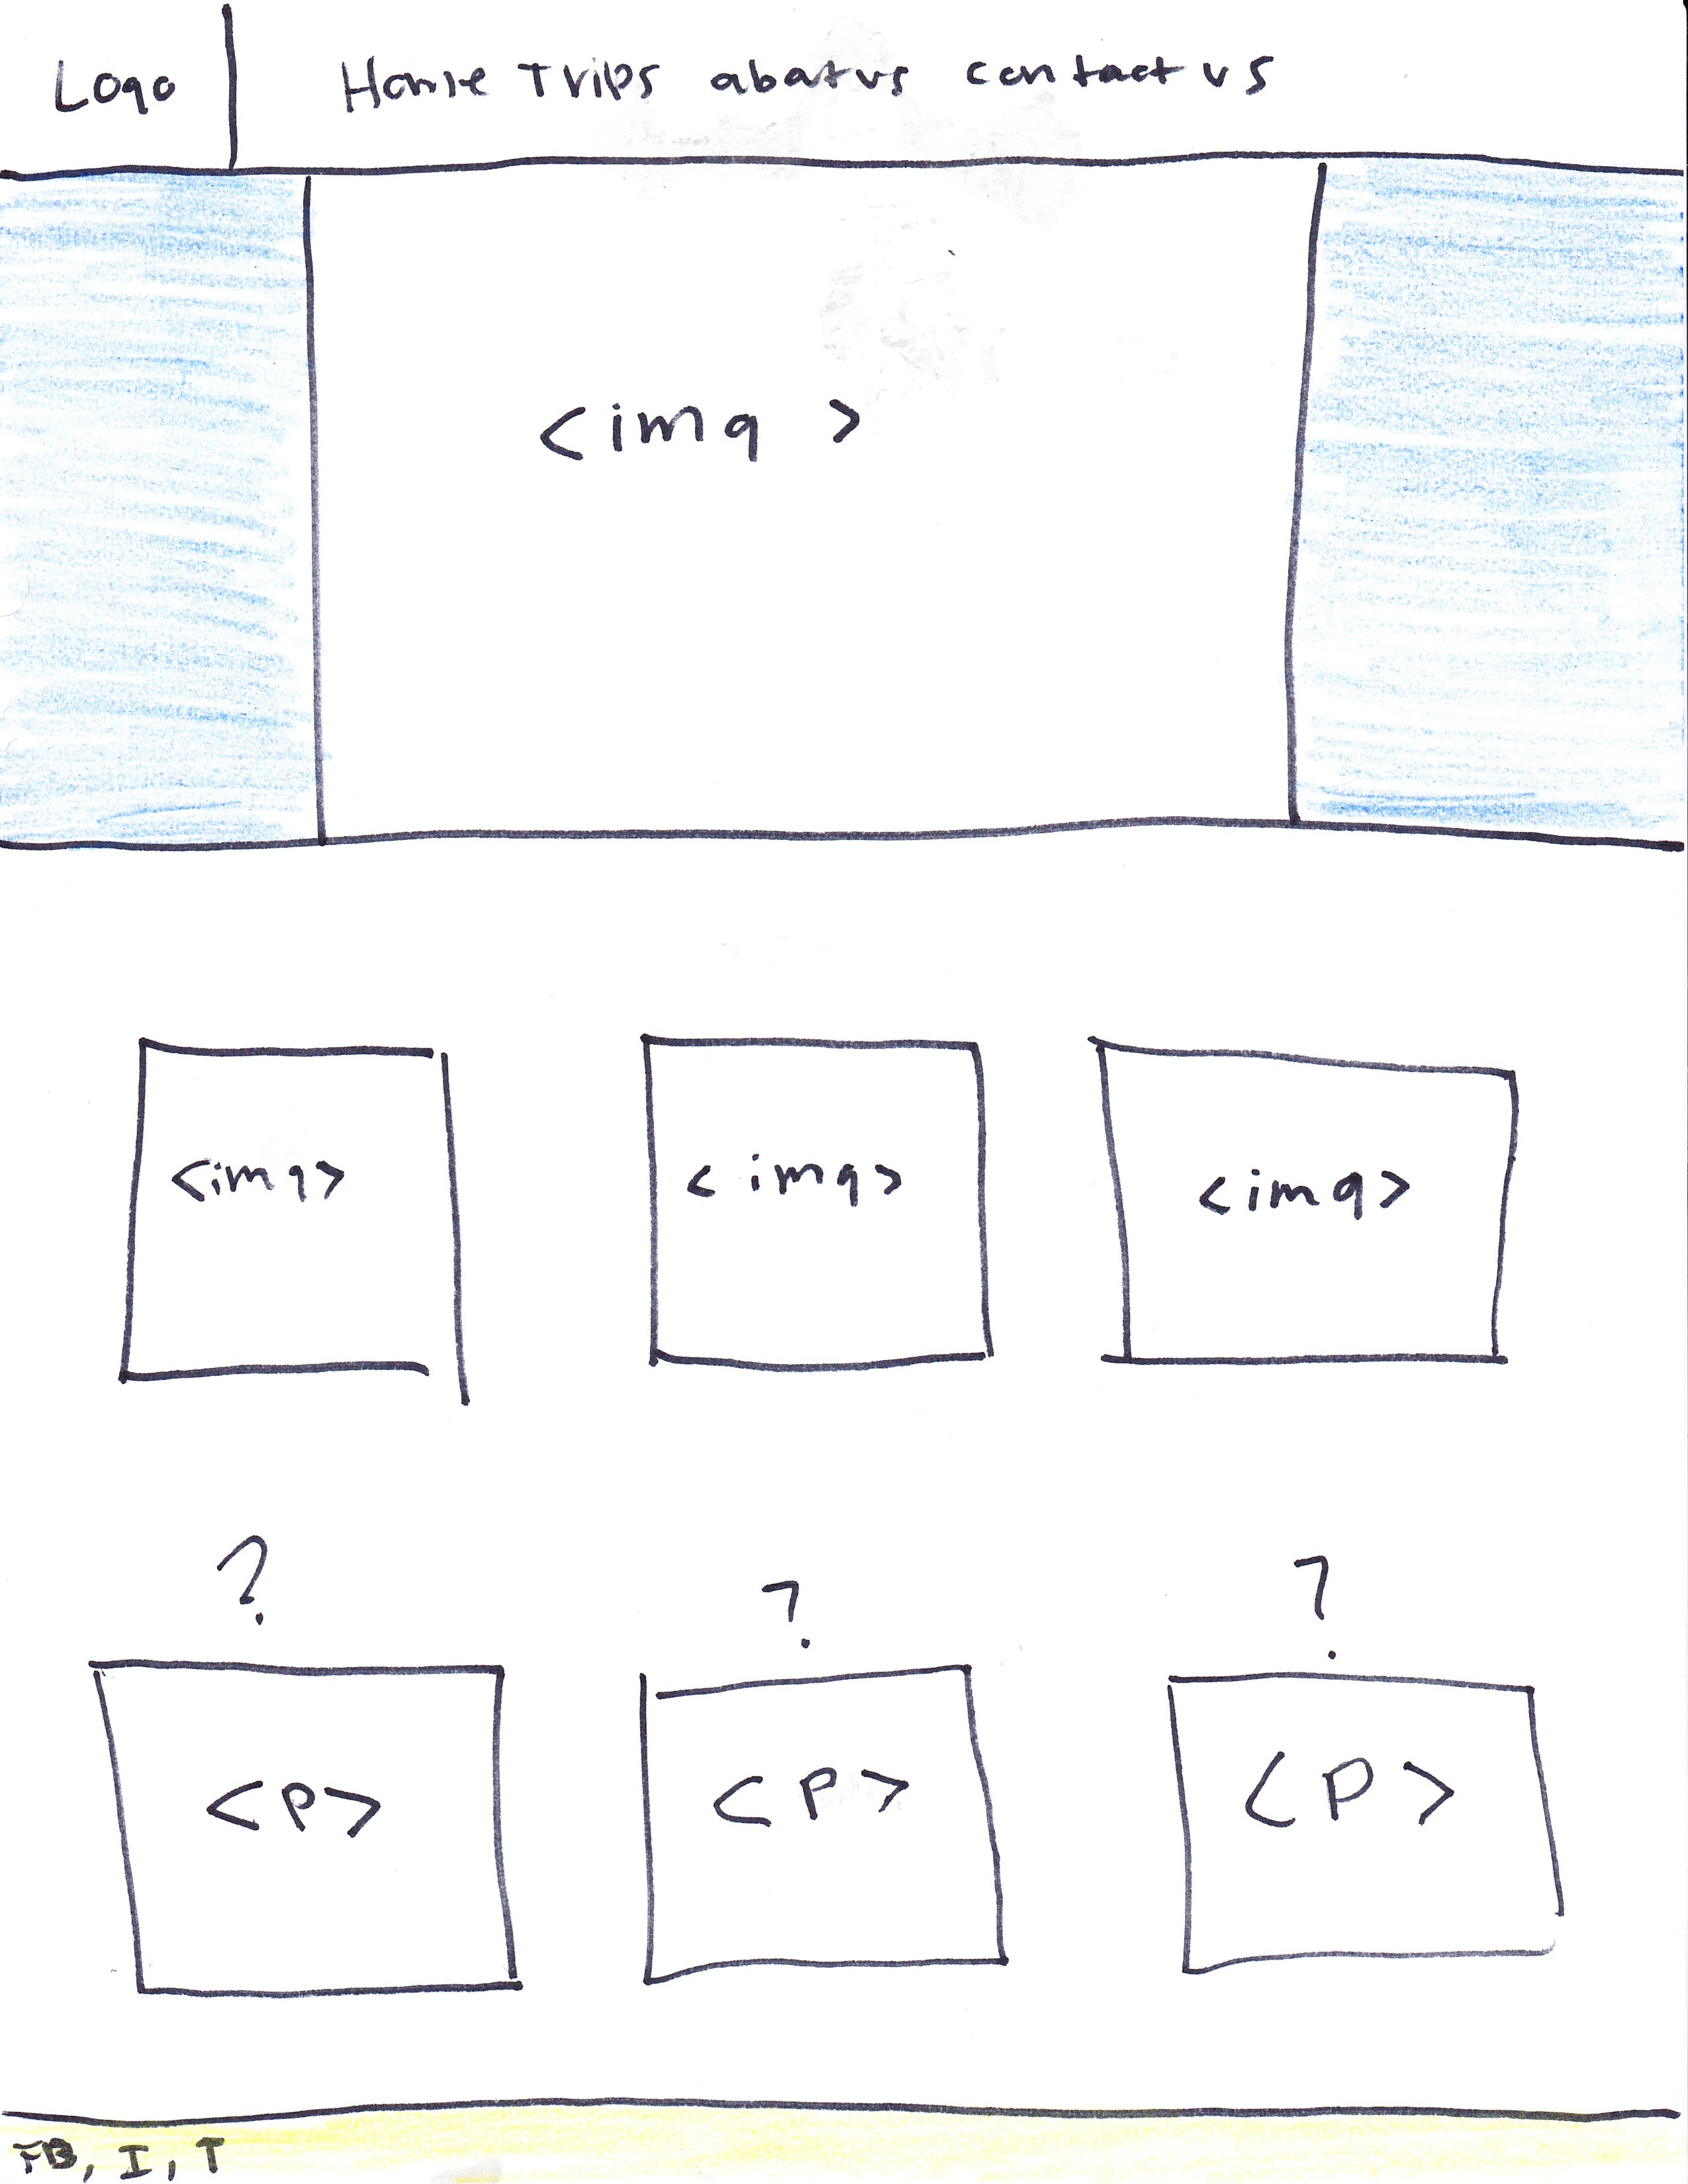 Logo Home Trips abatus contact us
<img>
<img> <img> <img>
? ? ?
<p> <p> <p>
FB, I, T